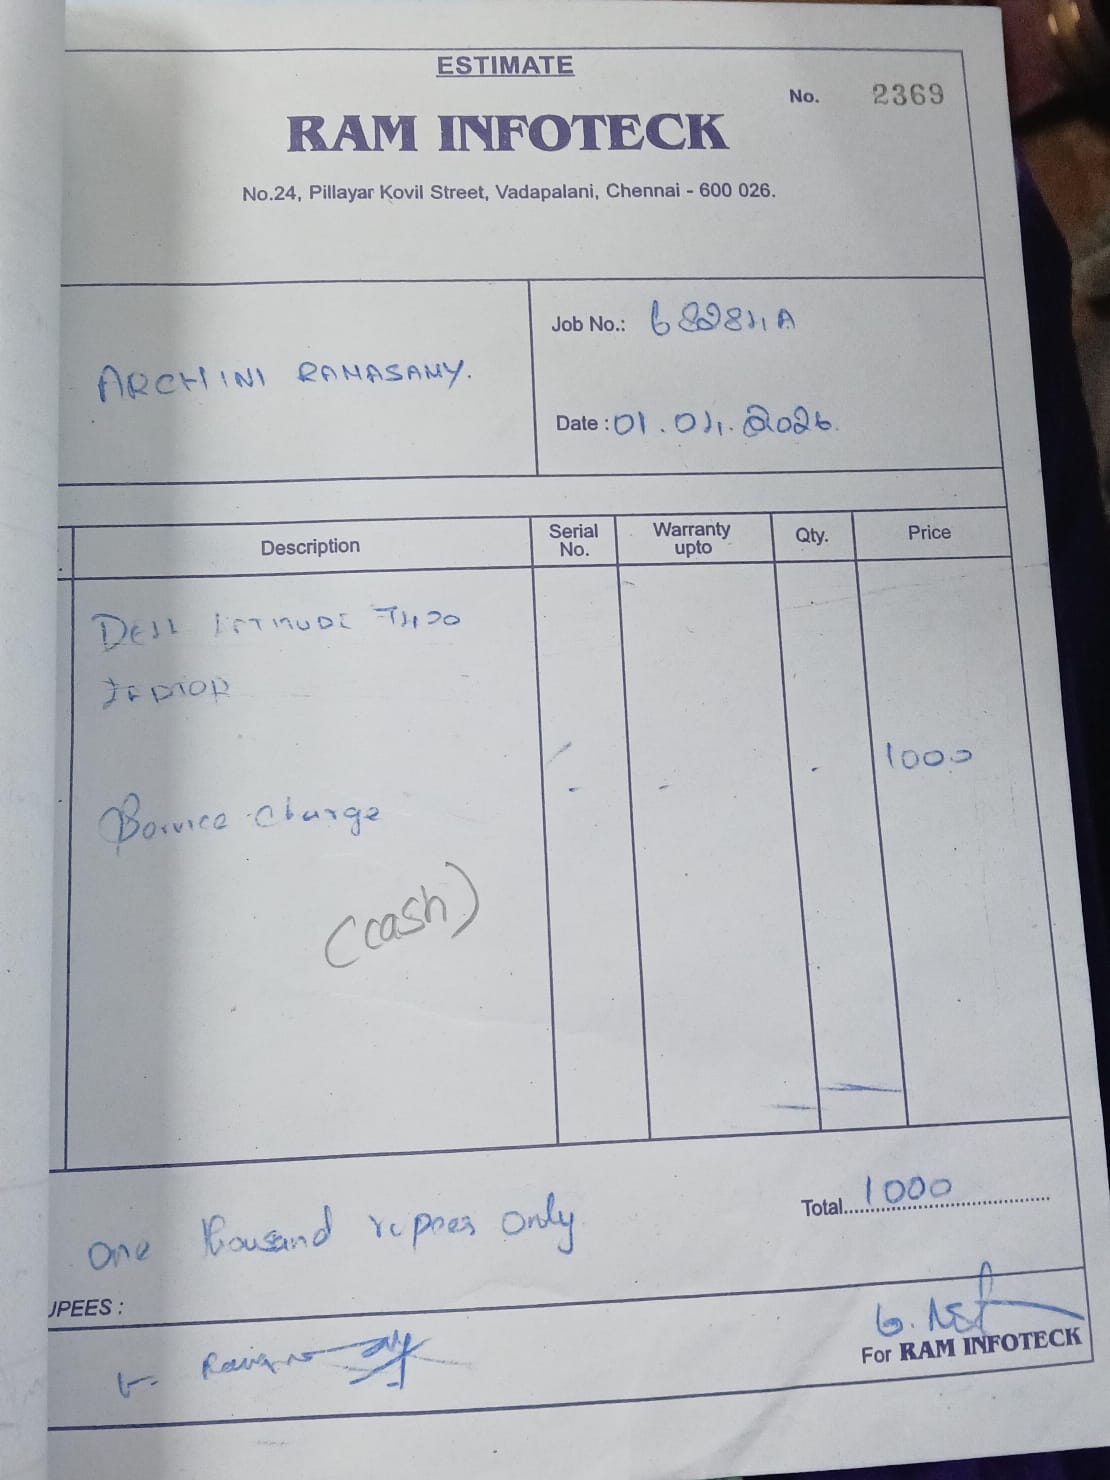 ESTIMATE
No. 2369
RAM INFOTECK
No.24, Pillayar Kovil Street, Vadapalani, Chennai - 600 026.
Job No.: 68284A
ARCHINI RAMASAMY.
Date : 01.04.2026.
Description Serial No. Warranty upto Qty. Price
DELL LATITUDE 7420
1000
Service Charge
(cash)
Total 1000
One thousand rupees only
UPEES :
For RAM INFOTECK